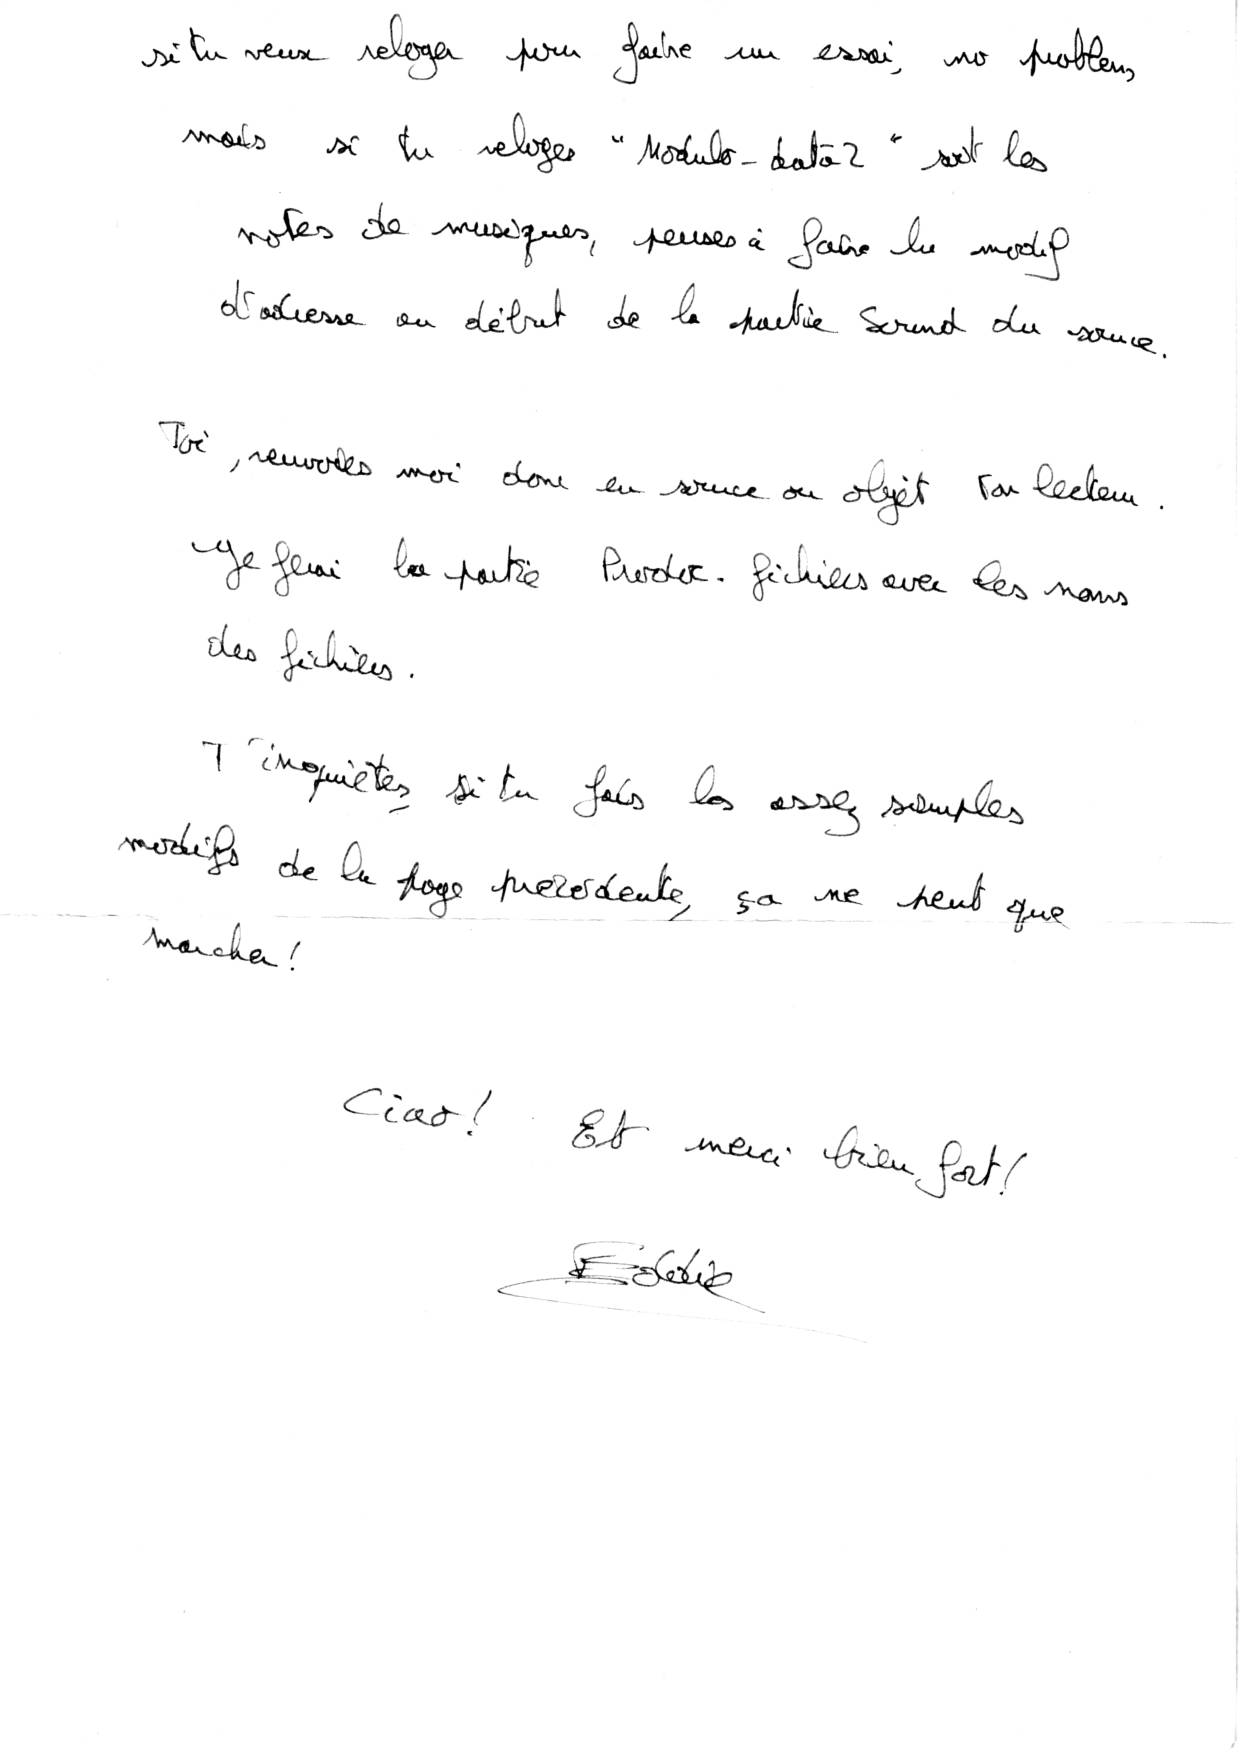 si tu veux reloger pour faire un essai, no problem,
mais si tu reloges "Modulo-data2" soit les
notes de musiques, penses à faire la modif
d'adresse au début de la partie Sound du source.
Toi, renvoies moi donc en source ou objèt ton lecteur.
Je ferai la partie fichiers avec les noms
des fichiers.
T'inquiètes, si tu fais les assez simples
modifs de la page précédente, ça ne peut que
marcher!
Ciao! Et merci bien fort!
Eddie